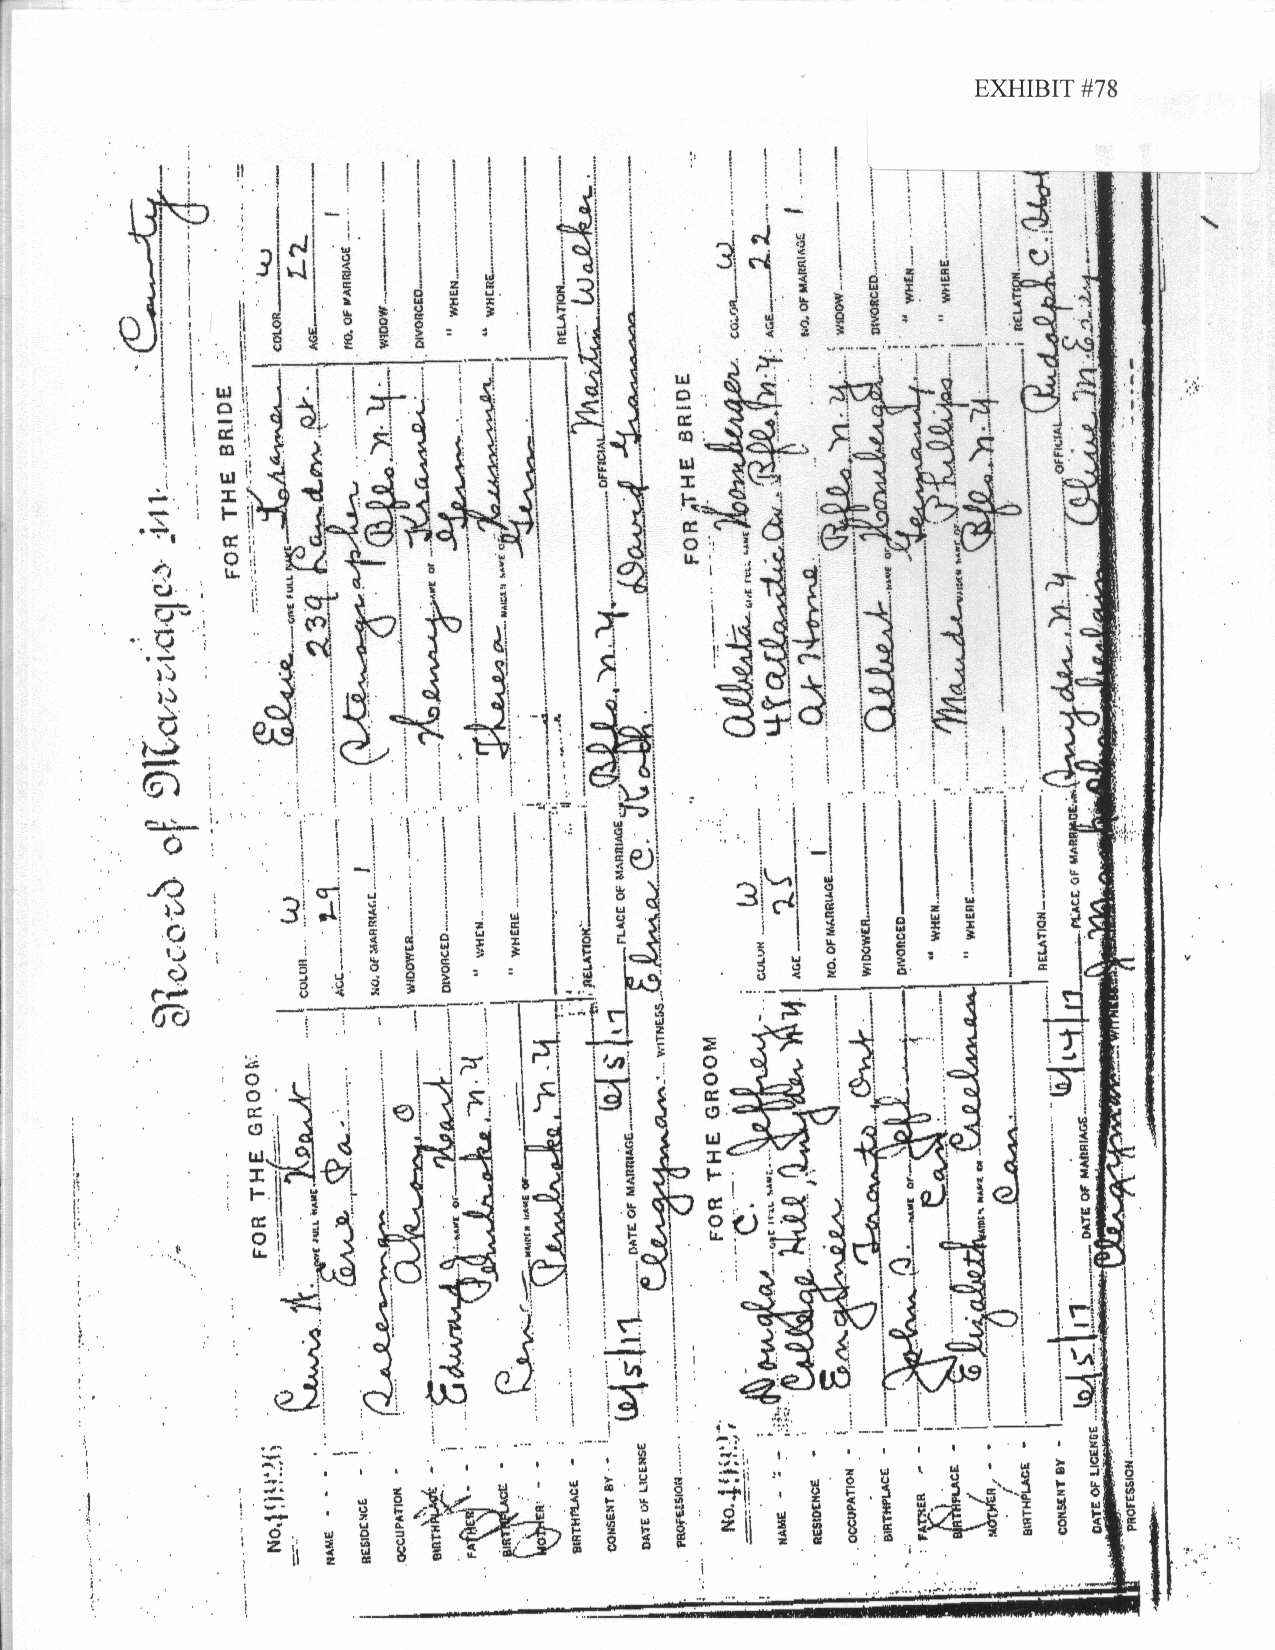 EXHIBIT #78
Record of Marriages in County
FOR THE GROOM FOR THE BRIDE
NAME - - - Lewis H. Heart COLOR W Elsie Kramer COLOR W
GIVE FULL NAME GIVE FULL NAME
RESIDENCE - Erie, Pa. AGE 29 239 Landon St. AGE 22
OCCUPATION - Salesman NO. OF MARRIAGE 1 Stenographer NO. OF MARRIAGE 1
BIRTHPLACE - Akron, O WIDOWER Bflo. N.Y. WIDOW
FATHER - Edward J Heart DIVORCED Henry Kramer DIVORCED
NAME OF NAME OF
BIRTHPLACE - Pembroke, N.Y " WHEN Germ " WHEN
MOTHER - " WHERE Theresa Kummer " WHERE
MAIDEN NAME OF MAIDEN NAME OF
BIRTHPLACE - Pembroke, N.Y Germ
CONSENT BY - RELATION RELATION
DATE OF LICENSE 6/5/17 DATE OF MARRIAGE 6/5/17 PLACE OF MARRIAGE Bflo. N.Y. OFFICIAL Martin Walker.
PROFESSION Clergyman. WITNESS Elma C. David
FOR THE GROOM FOR THE BRIDE
No.
NAME - - - Douglas C. Jeffrey COLOR W Alberta Homberger COLOR W
GIVE FULL NAME GIVE FULL NAME
RESIDENCE - College Hill, Snyder NY AGE 25 48 Atlantic Av. Bflo. N.Y. AGE 22
OCCUPATION - Engineer NO. OF MARRIAGE 1 At Home NO. OF MARRIAGE 1
BIRTHPLACE Toronto, Ont WIDOWER Bflo. N.Y. WIDOW
FATHER - John S. Jef DIVORCED Albert Homberger DIVORCED
NAME OF NAME OF
BIRTHPLACE - Can " WHEN Germany " WHEN
MOTHER - Elizabeth Creelman " WHERE Maude Phillips " WHERE
MAIDEN NAME OF MAIDEN NAME OF
BIRTHPLACE - Can. Bflo. N.Y
CONSENT BY - RELATION RELATION
DATE OF LICENSE 6/5/17 DATE OF MARRIAGE 6/14/17 PLACE OF MARRIAGE Snyder, N.Y OFFICIAL Rudolph C.
PROFESSION Clergyman WITNESS Olive M.